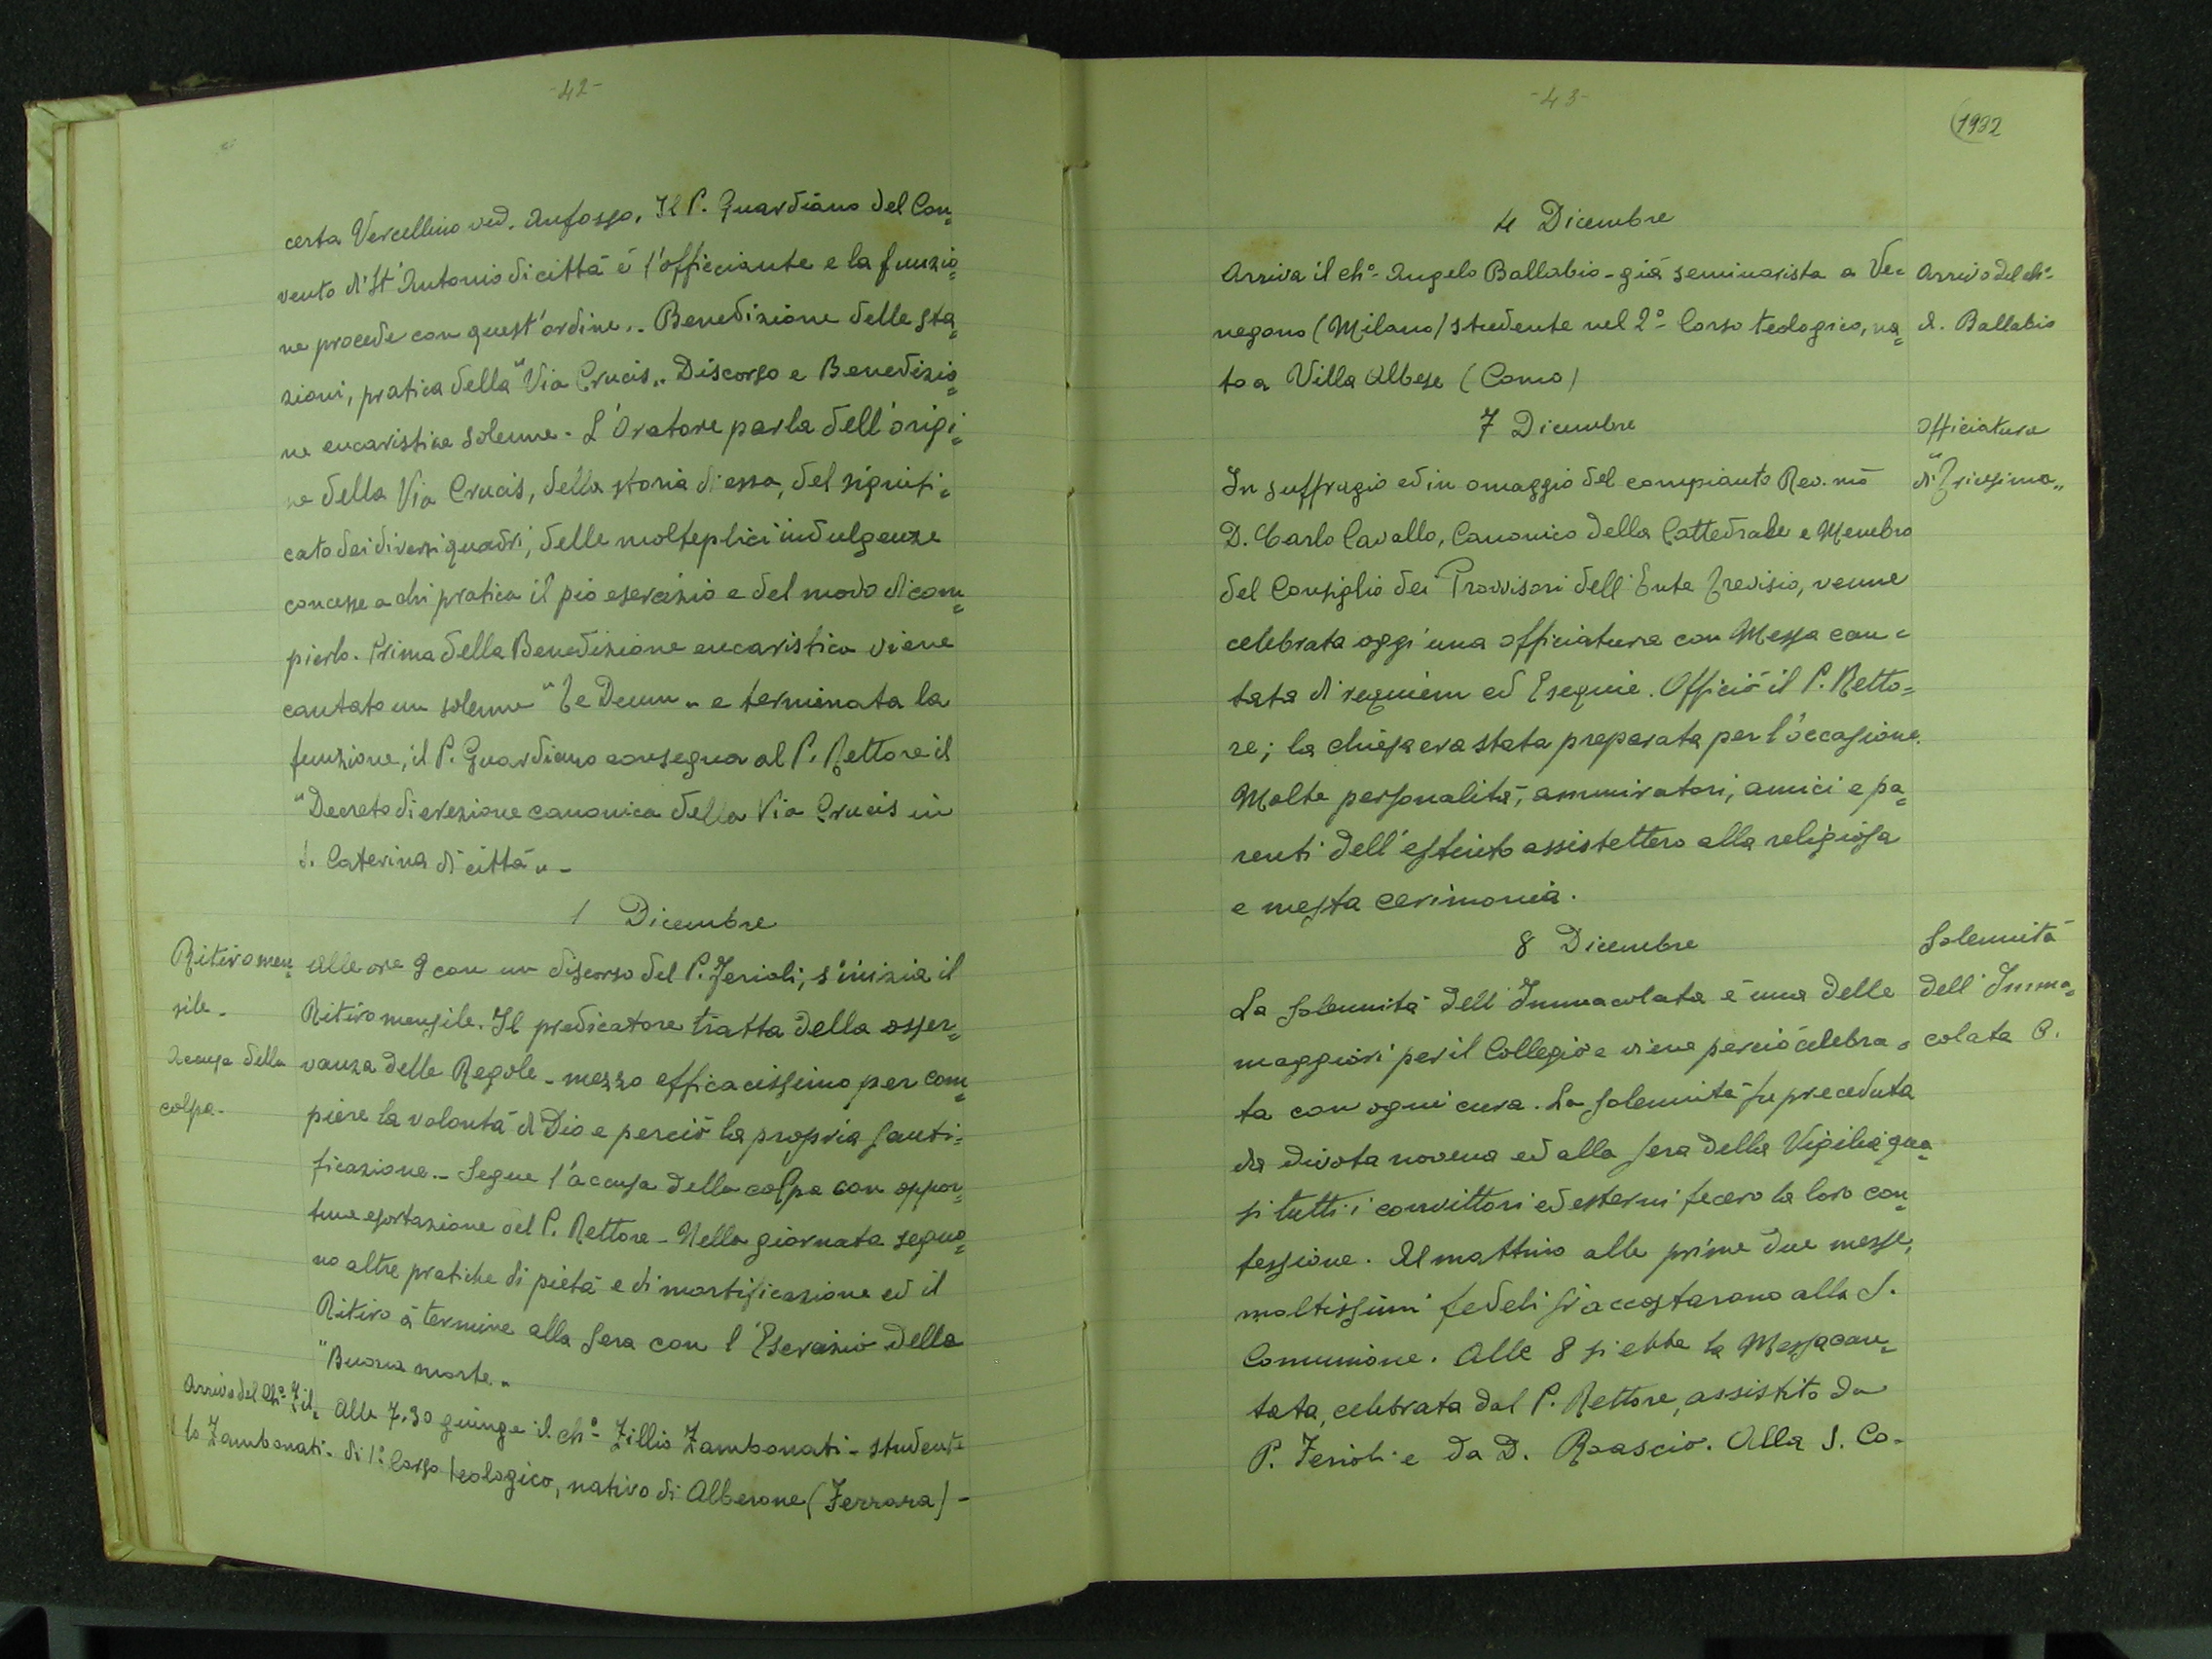 -42-
certa Vercellino ved. Anfosso. Il P. Guardiano del Con=
vento di St'Antonio di città è l'officiante e la funzio=
ne procede con quest'ordine.. Benedizione delle sta=
zioni, pratica della "Via Crucis„ Discorso e Benedizio=
ne eucaristica solenne - L'Oratore parla dell'origi=
ne della Via Crucis, della storia di essa, del signifi=
cato dei diversi quadri, delle molteplici indulgenze
concesse a chi pratica il pio esercizio e del modo di com=
pierlo. Prima della Benedizione eucaristica viene
cantato un solenne "Te Deum„ e terminata la
funzione, il P. Guardiano consegna al P. Rettore il
"Decreto di erezione canonica della Via Crucis in
S. Caterina di città„ -
1 Dicembre
Ritiro men=
sile -
Accusa della
colpa -
Alle ore 9 con un discorso del P. Ferioli, s'inizia il
Ritiro mensile. Il predicatore tratta della osser=
vanza delle Regole - mezzo efficacissimo per com=
piere la volontà di Dio e perciò la propria santi=
ficazione. - Segue l'accusa della colpa con oppor=
tuna esortazione del P. Rettore - Nella giornata seguo=
no altre pratiche di pietà e di mortificazione ed il
Ritiro à termine alla sera con l'Esercizio della
"Buona morte„
Arrivo del Ch° Zil=
lo Zambonati -
Alle 7.30 giunge il ch° Zillio Zambonati - studente
di 1° Corso teologico, nativo di Alberone (Ferrara) -
-43-
1932
4 Dicembre
Arriva il ch° Angelo Ballabio - già seminarista a Ve=
negono (Milano) studente nel 2° Corso teologico, na=
to a Villa Albese (Como)
Arrivo del ch°
A. Ballabio
7 Dicembre
Officiatura
di "Trigesima„
In suffragio ed in omaggio del compianto Rev.mo
D. Carlo Cavallo, Canonico della Cattedrale e Membro
del Consiglio dei Provvisori dell'Ente Trevisio, venne
celebrata oggi una officiatura con Messa can=
tata di requiem ed Esequie. Officiò il P. Retto=
re; la chiesa era stata preparata per l'occasione.
Molte personalità, ammiratori, amici e pa=
renti dell'estinto assistettero alla religiosa
e mesta cerimonia.
8 Dicembre
Solennità
dell'Imma=
colata C.
La solennità dell'Immacolata è una delle
maggiori per il Collegio e viene perciò celebra=
ta con ogni cura. La solennità fu preceduta
da divota novena ed alla sera della Vigilia qua=
si tutti i convittori ed esterni fecero la loro con=
fessione. Al mattino alle prime due messe,
moltissimi fedeli si accostarono alla S.
Comunione. Alle 8 si ebbe la Messa can=
tata, celebrata dal P. Rettore, assistito da
P. Ferioli e da D. Roascio. Alla S. Co-